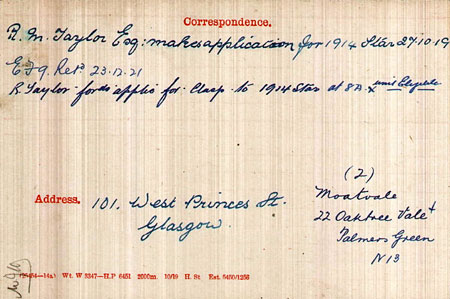 Correspondence.
R. M. Taylor Esq: makes application for 1914 Star 27.10.19
Efg. Ret. 23.12.21
R Taylor fords applin for Clasp to 1914 Star at 8D. x
Address. 101. West Princes St.
Glasgow.
(2)
Moatvale
22 Oaktree Vale
Palmers Green
N 13
Wt. W 3347—H.P 6451 2000m. 10/19 H. St Est. 5450/1256